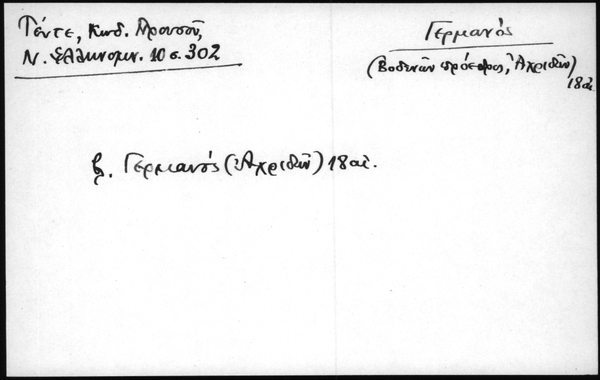 Γέντε, Κωδ. Προυσοῦ,
Ν. Ἑλληνομν. 10 σ. 302
Γερμανός
(Βοδενῶν πρόεδρος, Ἀχριδῶν)
18 αἰ.
β. Γερμανός (Ἀχριδῶν) 18 αἰ.